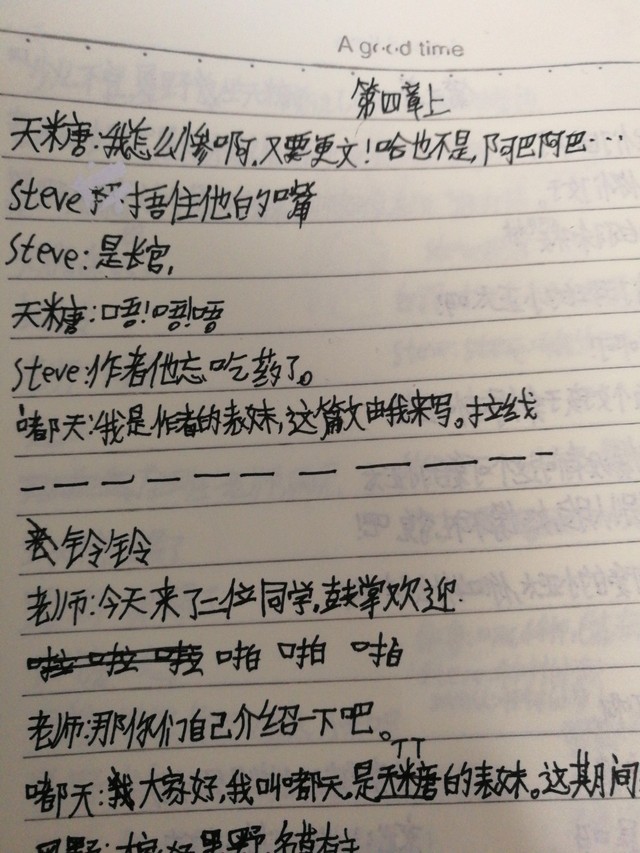 A good time
第四章上
天米唐:我怎么惨啊,又要更文!哈也不是,阿巴阿巴…
Steve TT:捂住他白的嘴
Steve:是长官,
天米糖:唔!唔!唔
Steve:作者他忘吃药了。
嘟天:我是作者的表妹,这篇文由我来写。拉线
铃铃
老师:今天来了二位同学,鼓掌欢迎.
啪 啪 啪
老师:那你们自己介绍一下吧。
TT
嘟天:我大家好,我叫嘟天,是天米糖的表妹。这其期间